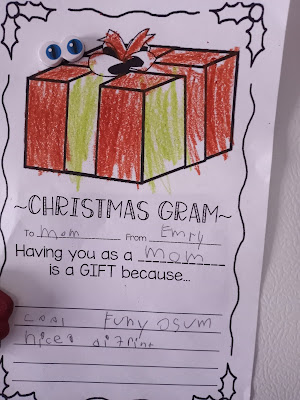 ~CHRISTMAS GRAM~
To mom From Emry
Having you as a mom
is a GIFT because...
cool Funy osum
nices